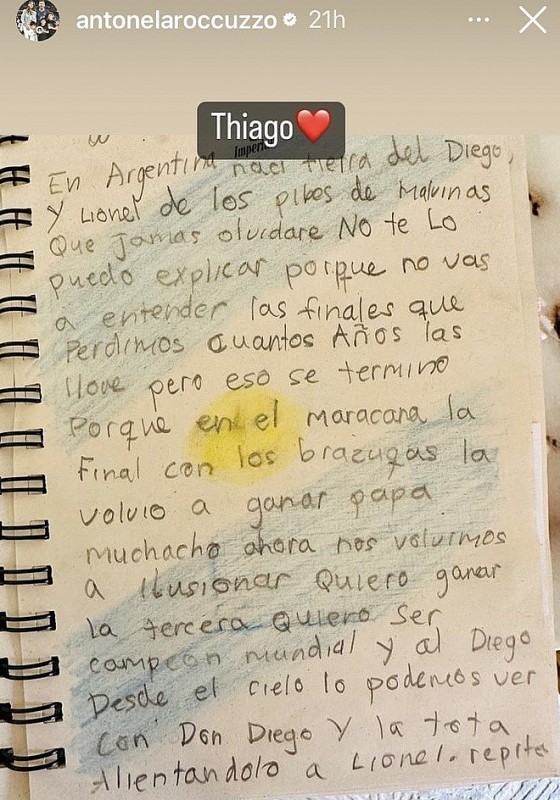 antonelaroccuzzo 21h
Thiago❤️
En Argentina naci tierra del Diego,
y Lionel de los pibes de Malvinas
Que jamas olvidare NO te Lo
puedo explicar porque no vas
a entender las finales que
Perdimos cuantos Años las
llore pero eso se termino
Porque en el maracana la
Final con los brazugas la
volvio a ganar papa
muchacho ahora nos volvimos
a Ilusionar Quiero ganar
la tercera Quiero ser
campeon mundial y al Diego
Desde el cielo lo podemos ver
con Don Diego Y la tota
Alientandolo a Lionel. repite